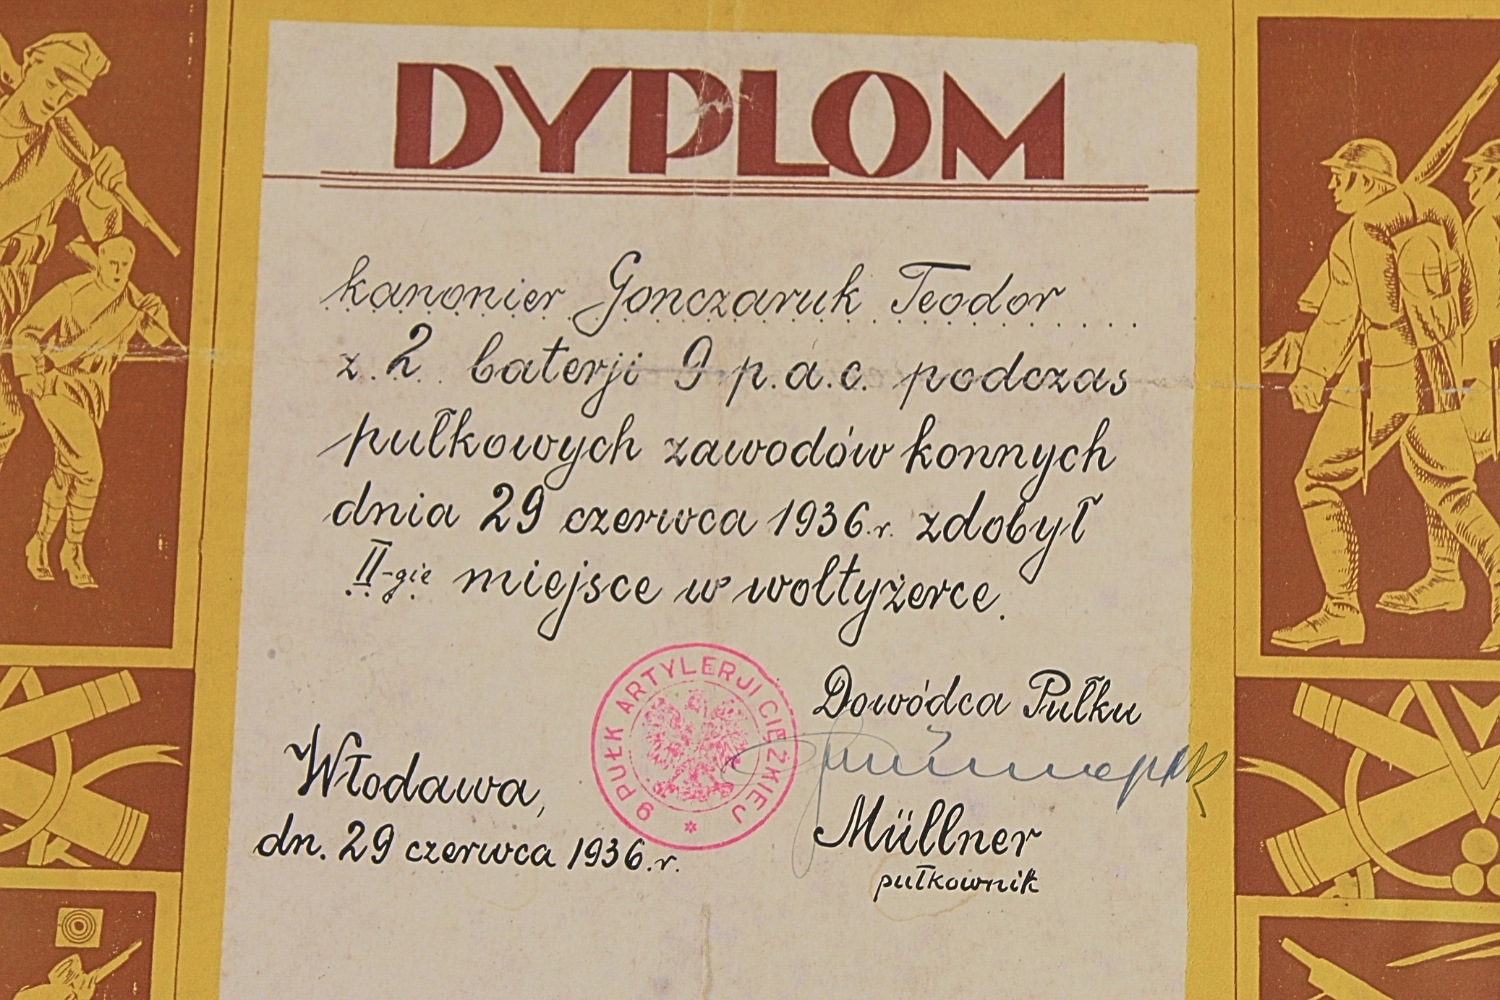 DYPLOM
kanonier Gonczaruk Teodor
z 2 baterji 9 p.a.c. podczas
pułkowych zawodów konnych
dnia 29 czerwca 1936 r. zdobył
II-gie miejsce w woltyżerce.
9 PUŁK ARTYLERJI CIĘŻKIEJ
Dowódca Pułku
Włodawa,
dn. 29 czerwca 1936.r.
Müllner
pułkownik